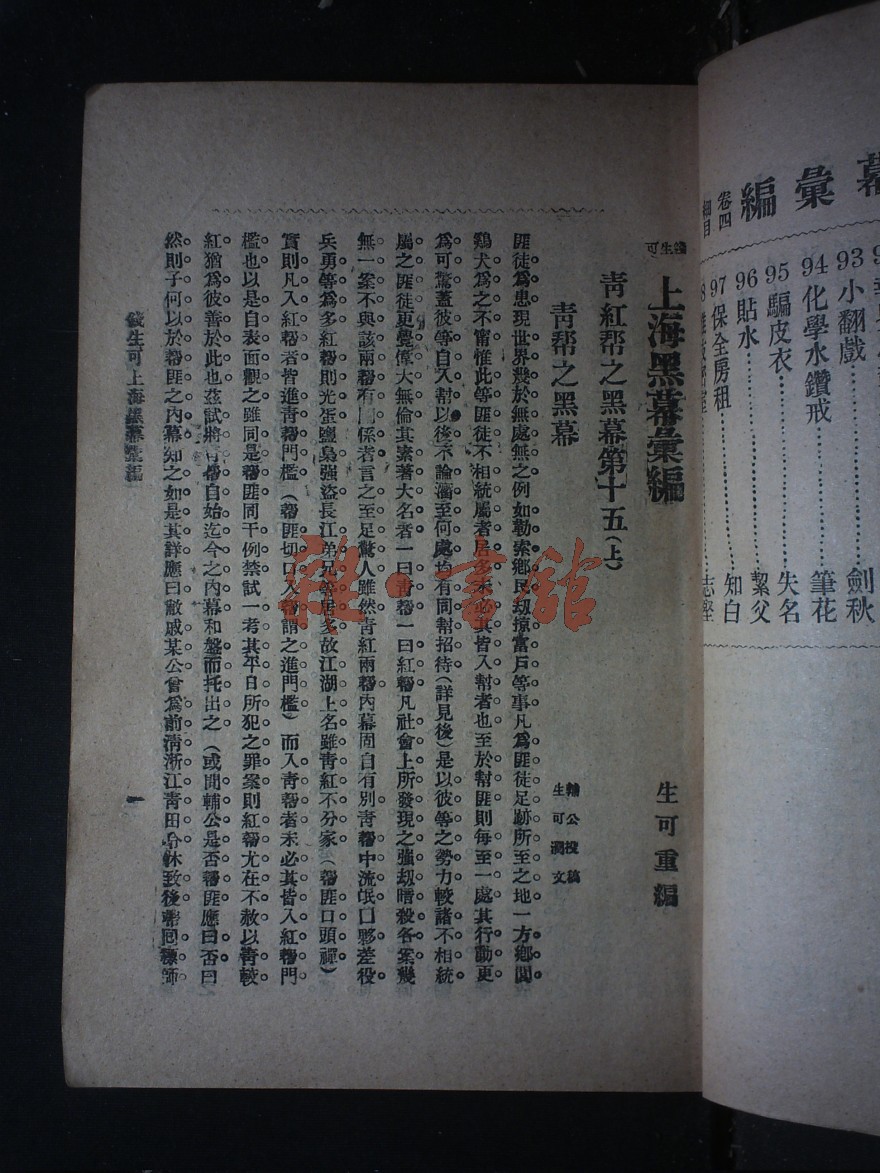 幕彙編
卷四
細目
93 小翻戲 劍秋
94 化學水鑽戒 筆花
95 騙皮衣 失名
96 貼水 絜父
97 保全房租 知白
志㘭
錢生可
上海黑幕彙編
生可重編
青紅帮之黑幕第十五(上)
輔公投稿
生可潤文
青帮之黑幕
匪徒爲患現世界幾於無處無之例如勒索鄉民刧掠富戶等事凡爲匪徒足跡所至之地一方鄉閭
鷄犬爲之不甯惟此等匪徒不相統屬者居多未必其皆入幇者也至於幇匪則每至一處其行動更
爲可驚蓋彼等自入幇以後不論流至何處均有同幇招待(詳見後)是以彼等之勢力較諸不相統
屬之匪徒更覺偉大無倫其素著大名者一曰青幫一曰紅幫凡社會上所發現之强刧暗殺各案幾
無一案不與該兩幫有關係者言之至足驚人雖然青紅兩幫內幕固自有別青幫中流氓口夥差役
兵勇等爲多紅幫則光蛋鹽梟强盜長江弟兄等居多故江湖上名雖青紅不分家(幫匪口頭禪)
實則凡入紅幫者皆進青幫門檻(幫匪切口入幫謂之進門檻)而入青幫者未必其皆入紅幫門
檻也以是自表面觀之雖同是幫匪同干例禁試一考其平日所犯之罪案則紅幫尤在不赦以青較
紅猶爲彼善於此也茲試將青幫自始迄今之內幕和盤而托出之(或問輔公是否幫匪應曰否曰
然則子何以於幫匪之內幕知之如是其詳應曰敝戚某公曾爲前清浙江青田令休致後幕同
錢生可上海黑幕彙編
一
雜·書館